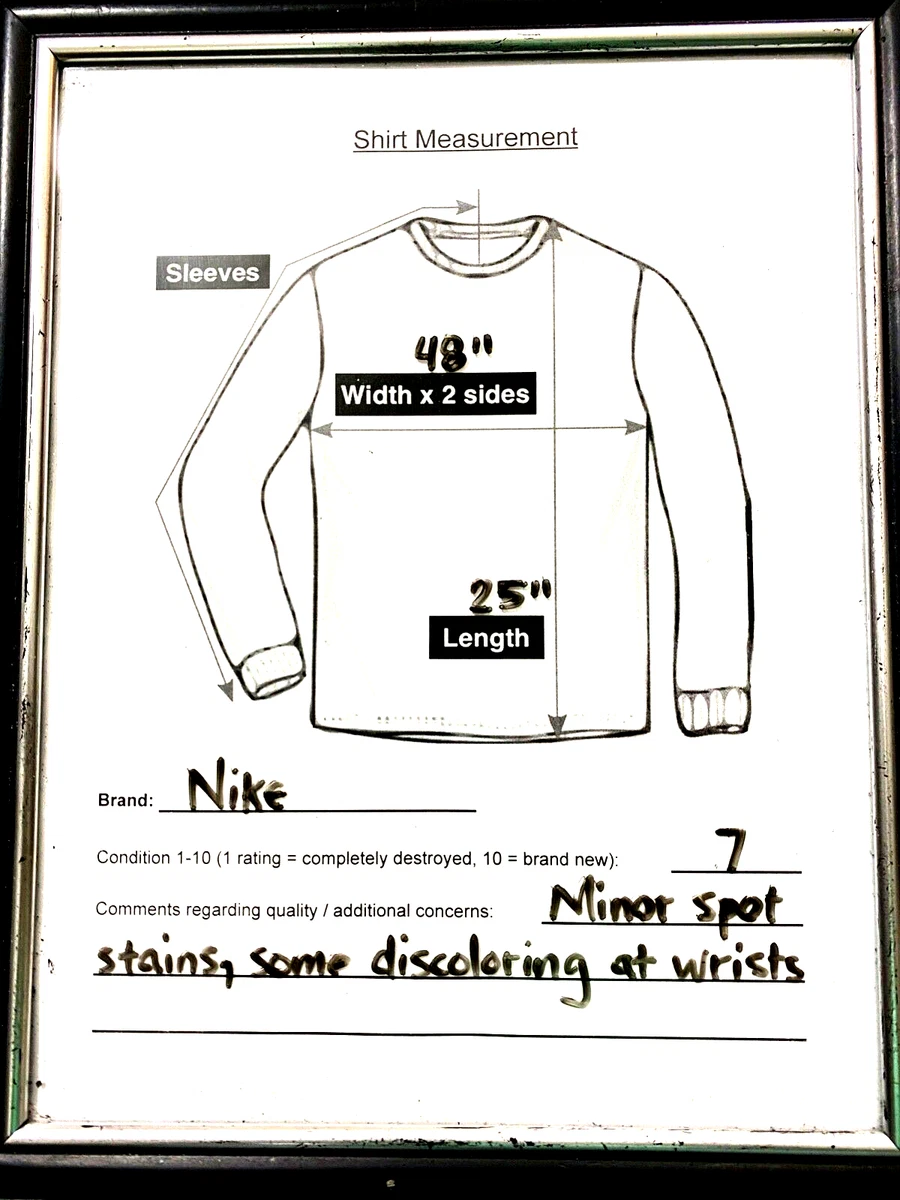 Shirt Measurement
Sleeves
48"
Width x 2 sides
25"
Length
Brand: Nike
Condition 1-10 (1 rating = completely destroyed, 10 = brand new): 7
Comments regarding quality / additional concerns: Minor spot
stains, some discoloring at wrists